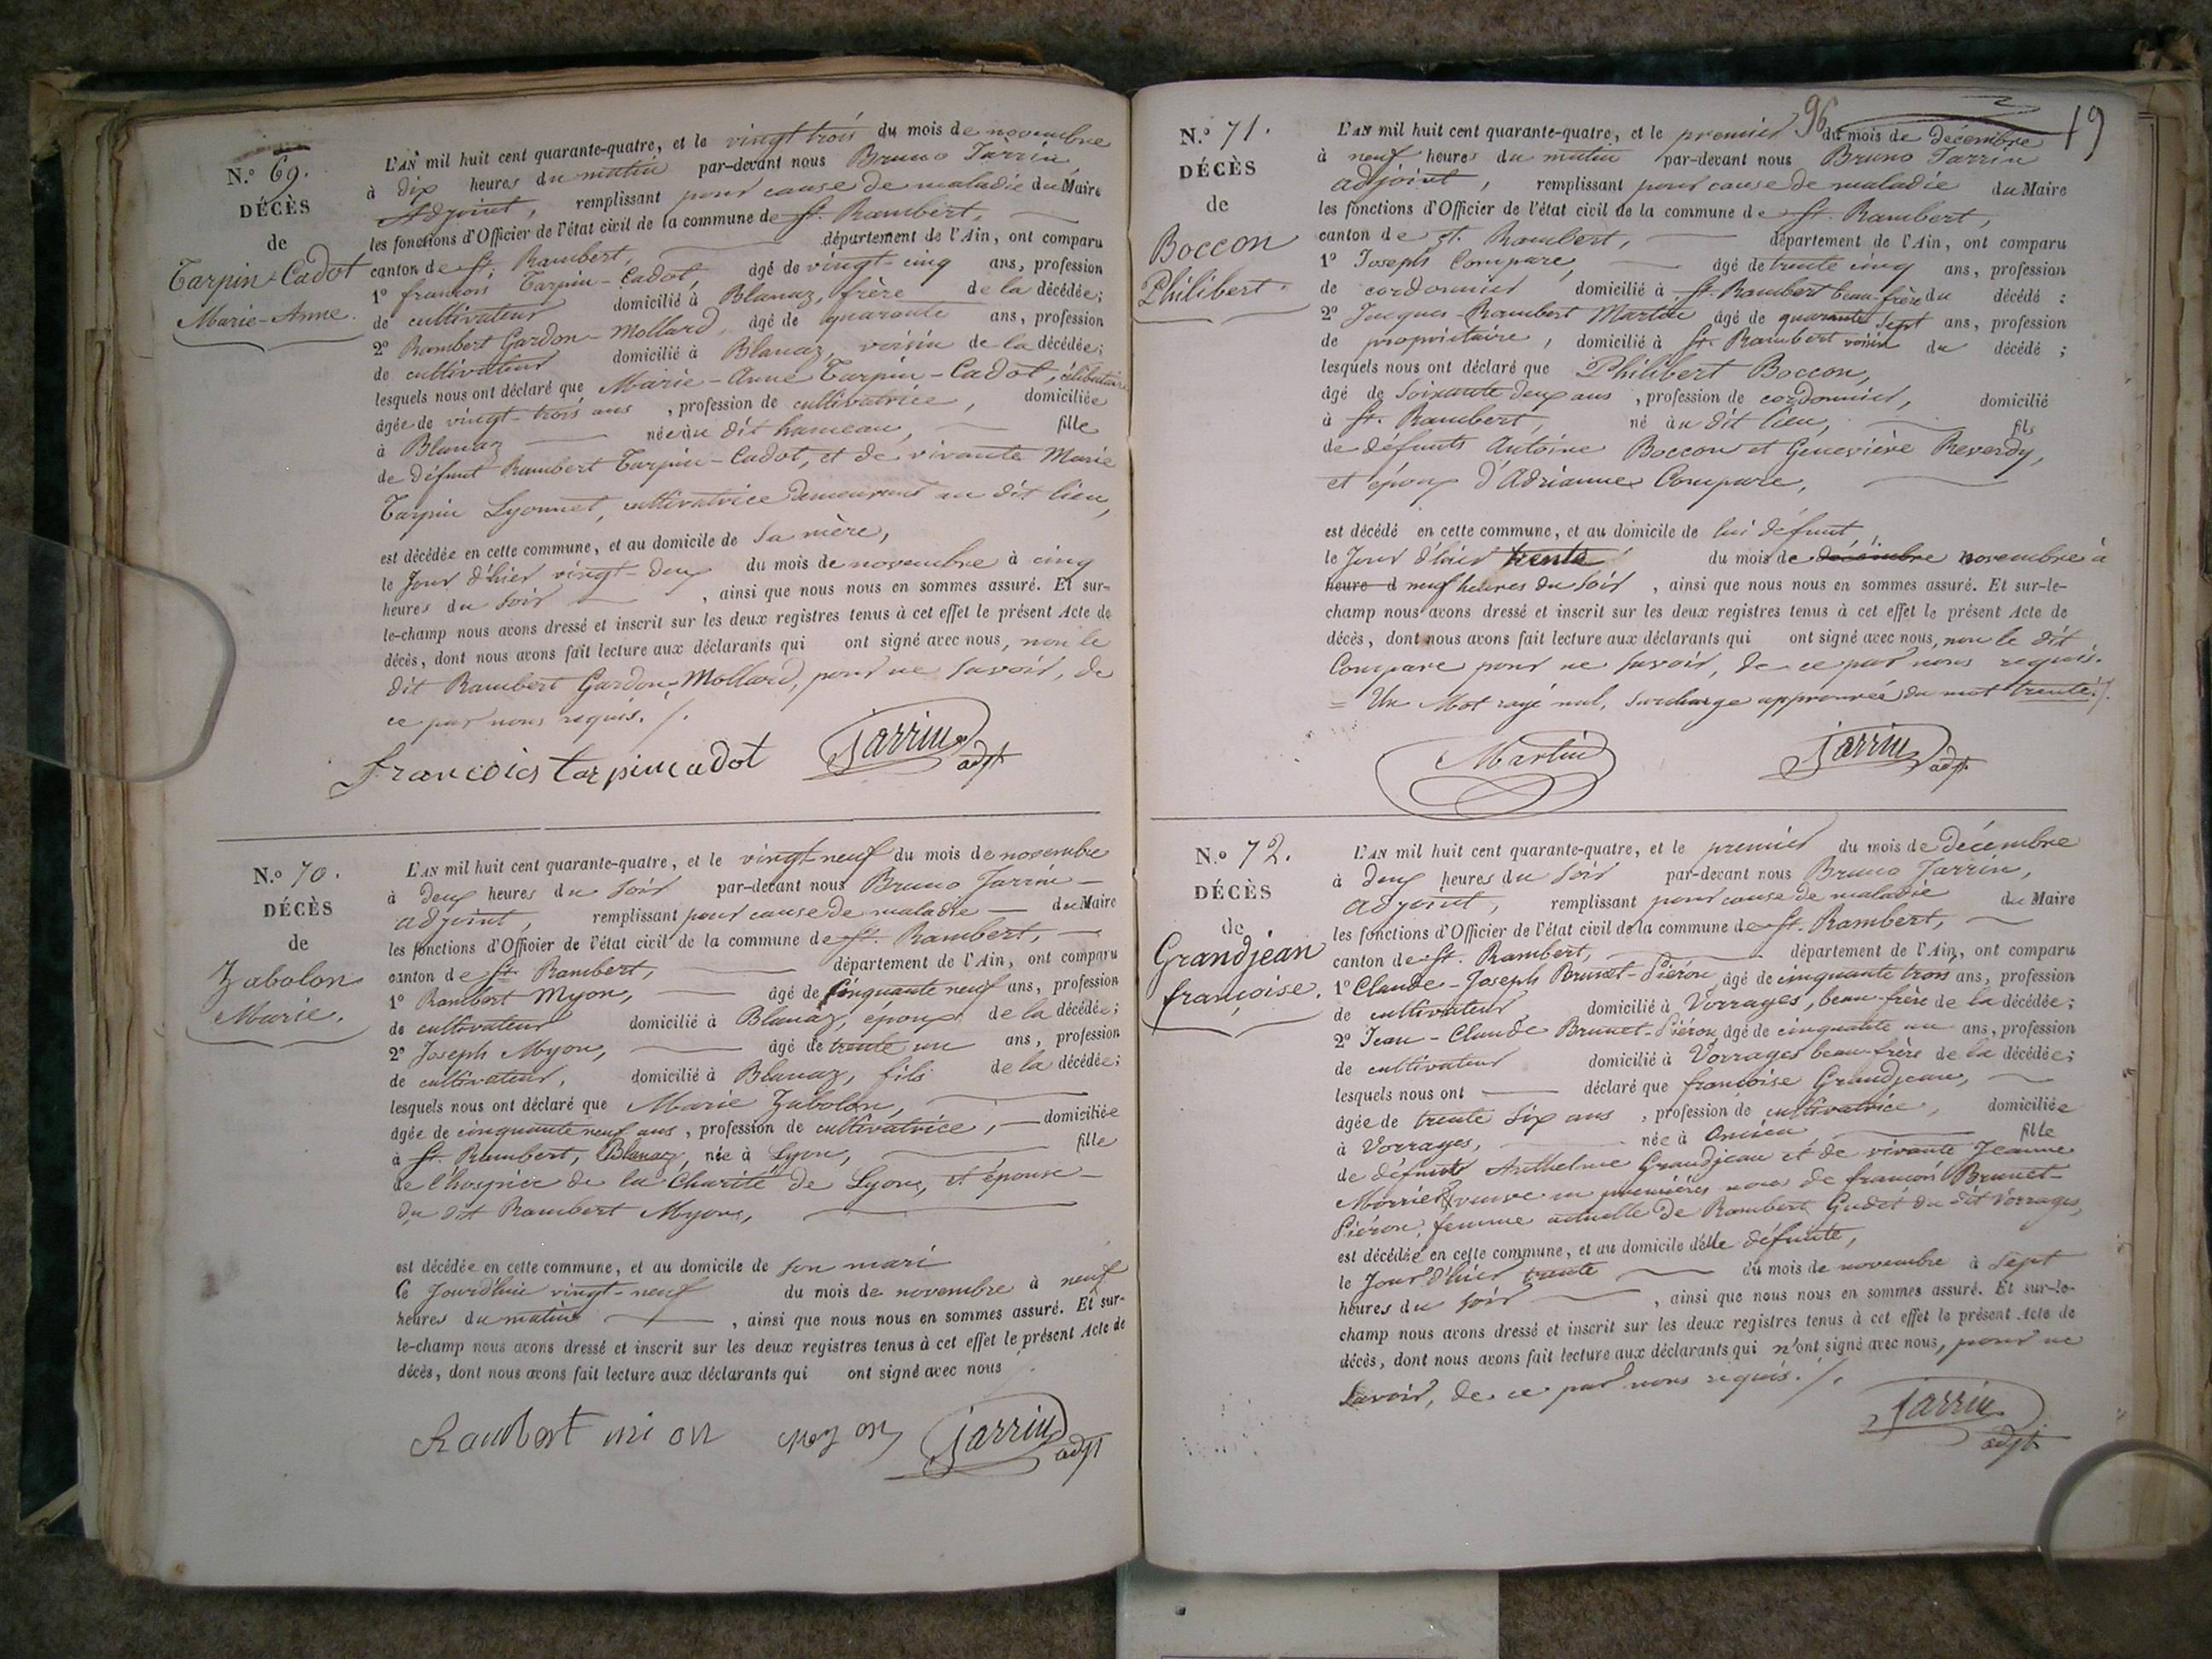 N.º 69.
DÉCÈS
de
Tarpin-Cadot
Marie-Anne.
L'AN mil huit cent quarante-quatre, et le vingt trois du mois de novembre
à dix heures du matin par-devant nous Bruno Jarrin
Adjoint, remplissant pour cause de maladie du Maire
les fonctions d'Officier de l'état civil de la commune de St. Rambert,
canton de St. Rambert, département de l'Ain, ont comparu
1º françois Tarpin-Cadot, âgé de vingt-cinq ans, profession
de cultivateur domicilié à Blanaz, frère de la décédée;
2º Rambert Gardon-Mollard, âgé de quarante ans, profession
de cultivateur domicilié à Blanaz, voisin de la décédée;
lesquels nous ont déclaré que Marie-Anne Tarpin-Cadot, célibataire
âgée de vingt-trois ans, profession de cultivatrice, domiciliée
à Blanaz née au dit hameau, fille
de défunt Rambert Tarpin-Cadot, et de vivante Marie
Tarpin Lyonnet, cultivatrice demeurant au dit lieu,
est décédée en cette commune, et au domicile de sa mère,
le Jour d'hier vingt-deux du mois de novembre à cinq
heures du soir, ainsi que nous nous en sommes assuré. Et sur-
le-champ nous avons dressé et inscrit sur les deux registres tenus à cet effet le présent Acte de
décès, dont nous avons fait lecture aux déclarants qui ont signé avec nous, non le
dit Rambert Gardon-Mollard, pour ne savoir, de
ce par nous requis. /.
francois tarpin cadot Jarrin adjt
N.º 70.
DÉCÈS
de
Zabolon
Marie.
L'AN mil huit cent quarante-quatre, et le vingt neuf du mois de novembre
à deux heures du soir par-devant nous Bruno Jarrin
adjoint, remplissant pour cause de maladie du Maire
les fonctions d'Officier de l'état civil de la commune de St. Rambert,
canton de St. Rambert, département de l'Ain, ont comparu
1º Rambert Myon, âgé de cinquante neuf ans, profession
de cultivateur domicilié à Blanaz, epoux de la décédée;
2º Joseph Myon, âgé de trente un ans, profession
de cultivateur, domicilié à Blanaz, fils de la décédée;
lesquels nous ont déclaré que Marie Zabolon,
âgée de cinquante neuf ans, profession de cultivatrice, domiciliée
à St. Rambert, Blanaz, née à Lyon, fille
de l'hospice de la Charité de Lyon, et épouse
du dit Rambert Myon,
est décédée en cette commune, et au domicile de son mari
Ce Jourd'hui vingt-neuf du mois de novembre à neuf
heures du matin, ainsi que nous nous en sommes assuré. Et sur-
le-champ nous avons dressé et inscrit sur les deux registres tenus à cet effet le présent Acte de
décès, dont nous avons fait lecture aux déclarants qui ont signé avec nous /.
Rambert mion myon Jarrin adjt
96 19
N.º 71.
DÉCÈS
de
Boccon
Philibert.
L'AN mil huit cent quarante-quatre, et le premier du mois de décembre
à neuf heures du matin par-devant nous Bruno Jarrin
adjoint, remplissant pour cause de maladie du Maire
les fonctions d'Officier de l'état civil de la commune de St. Rambert,
canton de St. Rambert, département de l'Ain, ont comparu
1º Joseph Compare, âgé de trente cinq ans, profession
de cordonnier domicilié à St. Rambert beau-frère du décédé;
2º Jacques-Rambert Martin âgé de quarante sept ans, profession
de propriétaire, domicilié à St. Rambert voisin du décédé;
lesquels nous ont déclaré que Philibert Boccon,
âgé de soixante deux ans, profession de cordonnier, domicilié
à St. Rambert, né au dit lieu, fils
de défunts Antoine Boccon et Geneviève Reverdy,
et époux d'Adrianne Compare,
est décédé en cette commune, et au domicile de lui défunt,
le Jour d'hier trente du mois de décembre novembre à
heure d neuf heures du soir, ainsi que nous nous en sommes assuré. Et sur-le-
champ nous avons dressé et inscrit sur les deux registres tenus à cet effet le présent Acte de
décès, dont nous avons fait lecture aux déclarants qui ont signé avec nous, non le dit
Compare pour ne savoir, de ce par nous requis.
= Un Mot rayé nul, surcharge approuvée du mot trente. /.
Martin Jarrin adjt.
N.º 72.
DÉCÈS
de
Grandjean
françoise.
L'AN mil huit cent quarante-quatre, et le premier du mois de décembre
à deux heures du soir par-devant nous Bruno Jarrin,
adjoint, remplissant pour cause de maladie du Maire
les fonctions d'Officier de l'état civil de la commune de St. Rambert,
canton de St. Rambert, département de l'Ain, ont comparu
1º Claude-Joseph Brunet-Piéron âgé de cinquante trois ans, profession
de cultivateur domicilié à Vorrages, beau-frère de la décédée;
2º Jean-Claude Brunet-Piéron, âgé de cinquante un ans, profession
de cultivateur domicilié à Vorrages beau-frère de la décédée;
lesquels nous ont déclaré que françoise Grandjean,
âgée de trente six ans, profession de cultivatrice, domiciliée
à Vorrages, née à Oncieu fille
de défunt Anthelme Grandjean et de vivante Jeanne
veuve en premières noces de françois Brunet-
Piéron, femme actuelle de Rambert Gudet du dit Vorrages,
est décédée en cette commune, et au domicile d'elle défunte,
le Jour d'hier trente du mois de novembre à sept
heures du soir, ainsi que nous nous en sommes assuré. Et sur-le-
champ nous avons dressé et inscrit sur les deux registres tenus à cet effet le présent Acte de
décès, dont nous avons fait lecture aux déclarants qui n'ont signé avec nous, pour ne
savoir, de ce par nous requis. /.
Jarrin adjt.